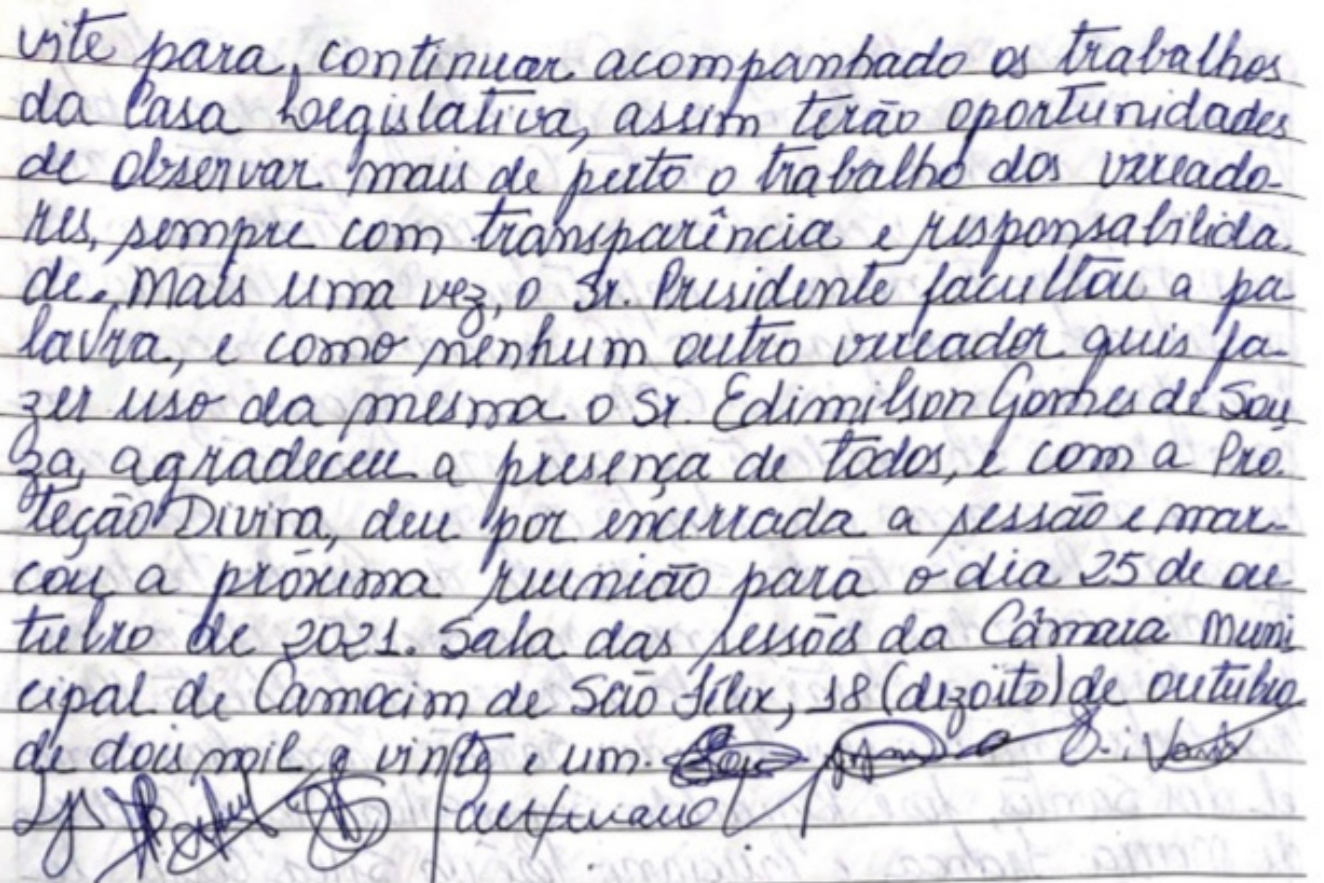 vite para, continuar acompanhado os trabalhos
da Casa Legislativa, assim terão oportunidades
de observar mais de perto o trabalho dos vereado-
res, sempre com transparência e responsabilida-
de. Mais uma vez, o Sr. Presidente facultou a pa-
lavra, e como nenhum outro vereador quis fa-
zer uso da mesma o Sr. Edimilson Gomes de Sou
za, agradeceu a presença de todos, e com a Pro-
teção Divina, deu por encerrada a sessão e mar-
cou a próxima reunião para o dia 25 de ou
tubro de 2021. Sala das sessões da Câmara Muni
cipal de Camocim de São Félix, 18 (dezoito) de outubro
de dois mil e vinte e um.